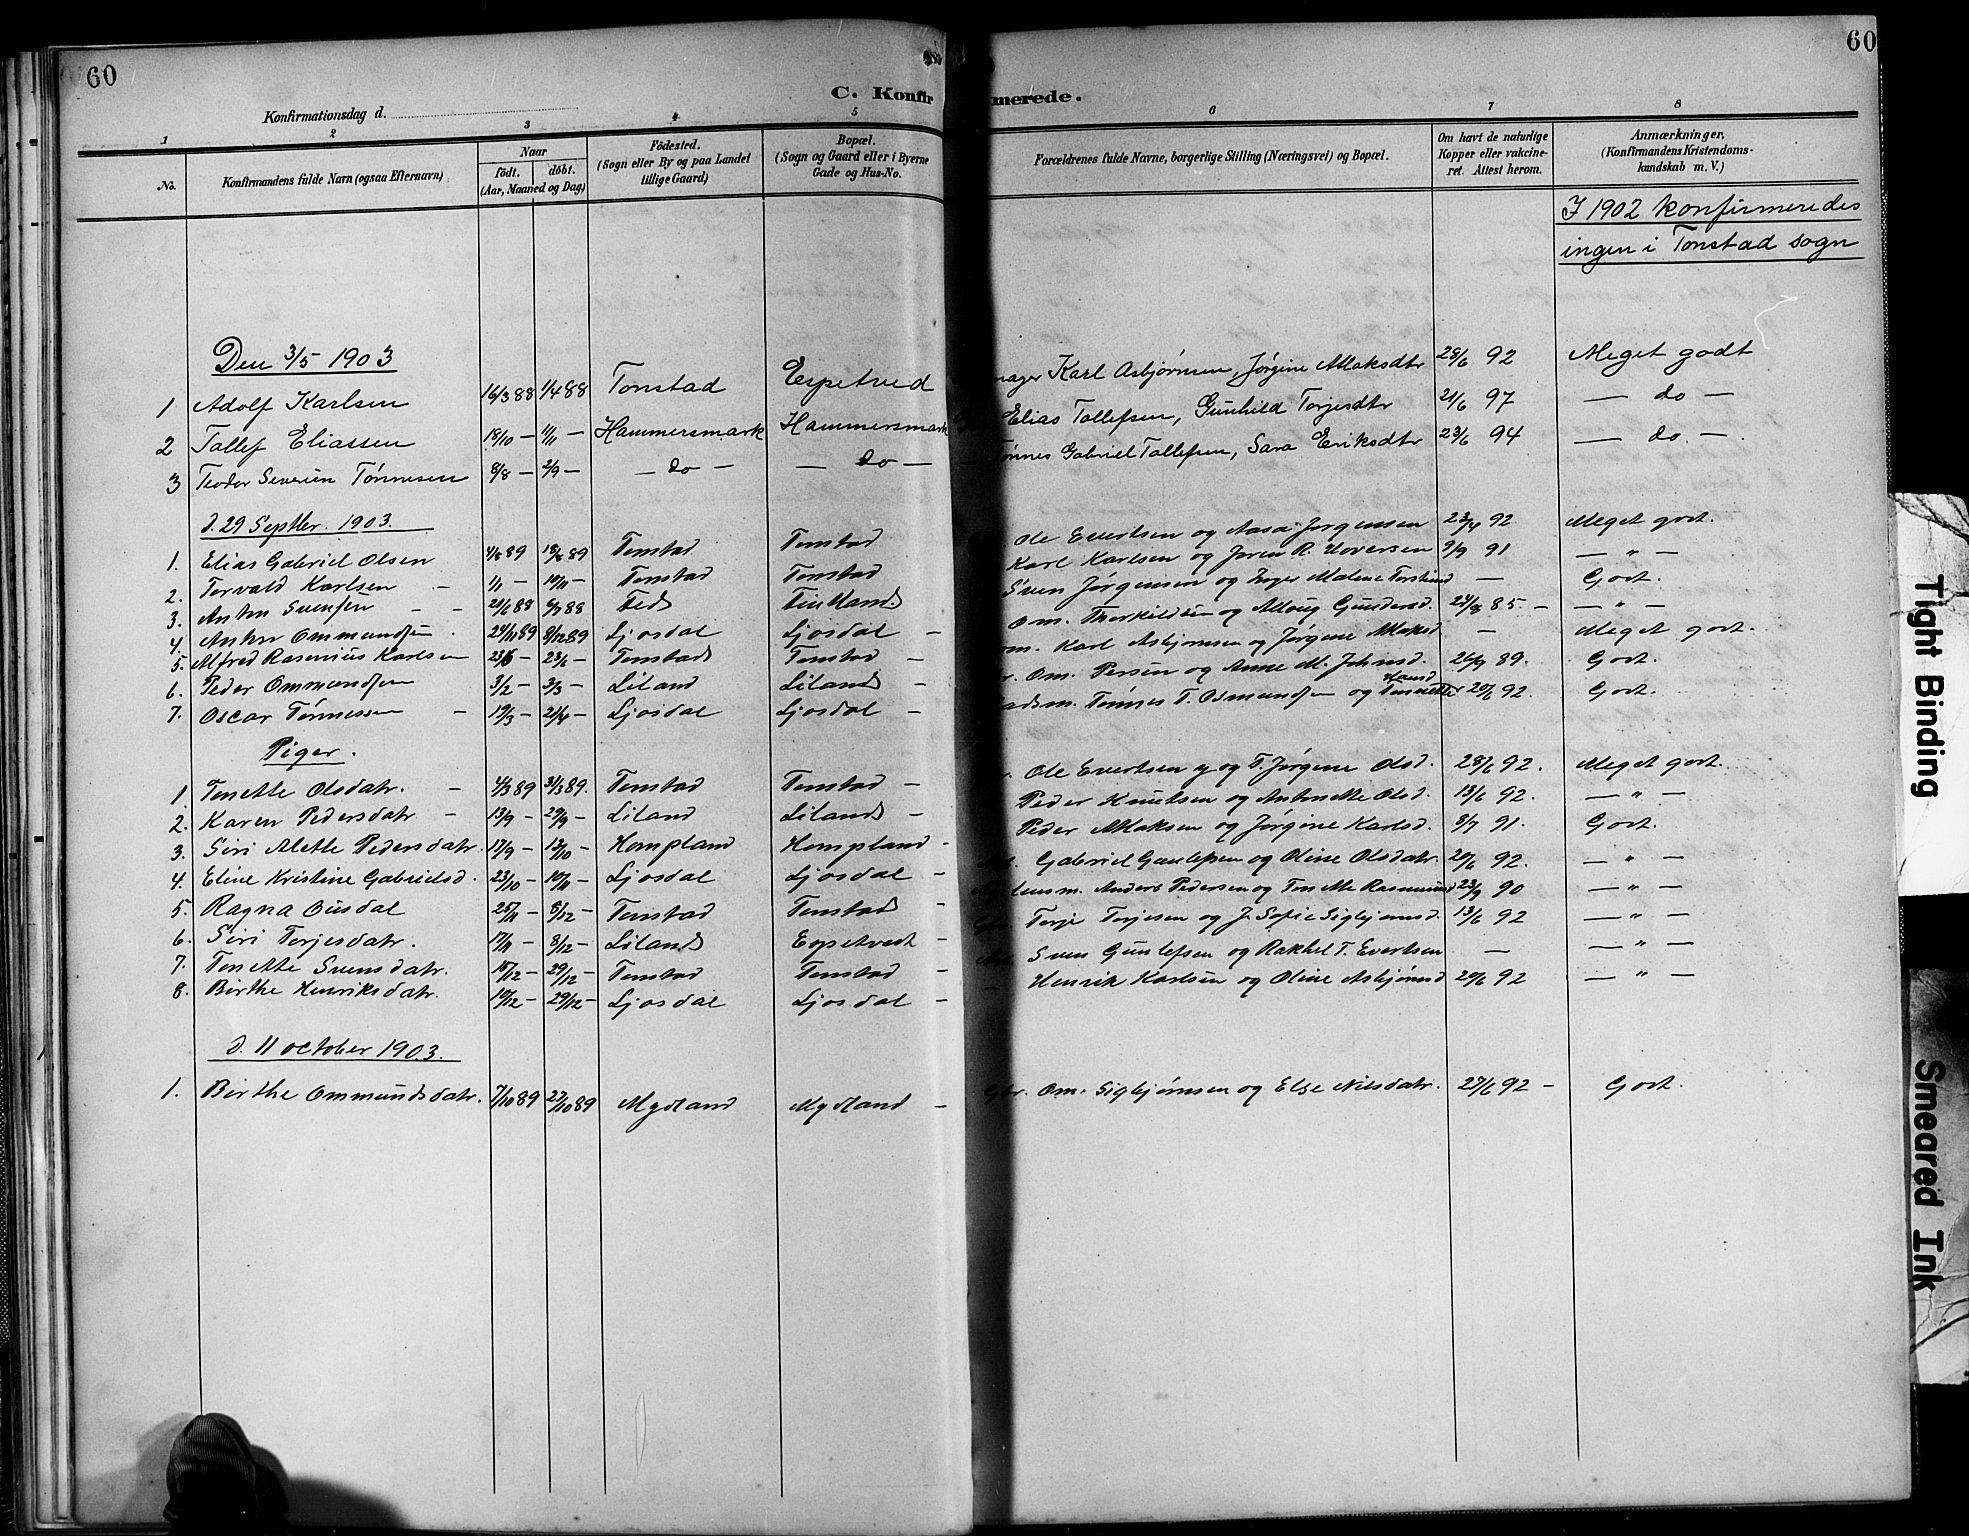 60
60
C. Konfirmerede.
Konfirmationsdag d.
1 2 3 4 5 6 7 8
No.
Konfirmandens fulde Navn (ogsaa Efternavn)
Naar
født. døbt.
(Aar, Maaned og Dag)
Födested.
(Sogn eller By og paa Landet tillige Gaard)
Bopæl.
(Sogn og Gaard eller i Byerne Gade og Hus-No.
Forældrenes fulde Navne, borgerlige Stilling (Næringsvei) og Bopæl.
Om havt de naturlige Kopper eller vakcineret. Attest herom.
Anmærkninger,
(Konfirmandens Kristendomskundskab m. V.)
I 1902 konfirmeredes
ingen i Tonstad sogn
Den 3/5 1903
1 Adolf Karlsen 16/3 88 1/4 88 Tonstad Espetved Karl Asbjørnsen, Jørgine Aslaksdtr 28/6 92 Meget godt
2 Tallef Eliassen 18/10 — 1/11 — Hammersmark Hammersmark Elias Tallefsen, Gunhild Torjesdtr 21/6 97 — do —
3 Teodor Severin Tønnesen 8/8 — 2/9 — — do — — do — Tønnes Gabriel Tallefsen, Sara Eriksdtr 23/6 94 — do. —
d. 29 Septbr. 1903.
1. Elias Gabriel Olsen Tonstad Tonstad Ole Evertsen og Aasa Jørgensen 92 Meget godt.
2. Torvald Karlsen 1/11 — 10/11 — Tonstad Tonstad Karl Karlsen og Joren R. Hoversen 9/9 91 — " —
3. Anton Svensen 88 88 Feda Sven Jørgensen og Inger Malene — Godt.
4. Anton Ommundsen 24/11 89 8/12 89 Ljosdal Ljosdal — Om. Therkildsen og Gundersd. 85. — — " —
5. Alfred Rasmus Karlsen 23/6 — Tonstad Tonstad — Karl Asbjørnsen og Jørgine Aslaksd — Meget godt.
6. Peder Ommundsen 3/2 — 3/3 — Liland Liland — Om. Persen og Anne M. Johnsd. 26/9 89. Godt.
7. Oscar Tønnessen — 19/3 — 21/4 — Ljosdal Ljosdal — Tønnes T. Osmundsen og 20/6 92. Godt.
Piger.
1. Tonette Olsdatr. — 4/3 89 31/3 89. Tonstad Tonstad — Ole Evertsen y og T. Jørgine Olsd. 28/6 92. Meget godt.
2. Karen Pedersdatr — 13/9 — 29/9 — Liland Liland — Peder Knutsen og Antonette Olsd. 13/6 92. — " —
3. Siri Alette Pedersdatr. 17/9 — 13/10 — Hompland Hompland — Peder Aslaksen og Jørgine Karlsd. 8/7 91. Godt.
4. Eline Kristine Gabrielsd. 23/10 — 10/11 — Ljosdal Ljosdal — Gabriel Gunlefsen og Oline Olsdatr. 20/6 92. — " —
5. Ragna Ousdal 25/11 — 8/12 — Tonstad Tonstad — Anders Pedersen og Tonette Rasmusd 23/9 90 — " —
6. Siri Torjesdatr. 17/11 — 8/12 — Liland Espetvedt — Torje Torjesen og J. Sofie Sigbjørnsd. 13/6 92 — " —
7. Tonette Svensdatr. 15/12 — 29/12 — Tonstad Tonstad — Sven Gunlefsen og Rakhel T. Evertsen — — " —
8. Birthe Henriksdatr. 19/12 — 29/12 — Ljosdal Ljosdal — Henrik Karlsen og Oline Asbjørnsd 20/6 92 — " —
d. 11 october 1903.
1. Birthe Ommundsdatr. 7/10 89 27/10 89 Mydland Mydland — Gbr. Om. Sigbjørnsen og Else Nilsdatr. 27/6 92 — Godt.
Tight Binding
Smeared Ink